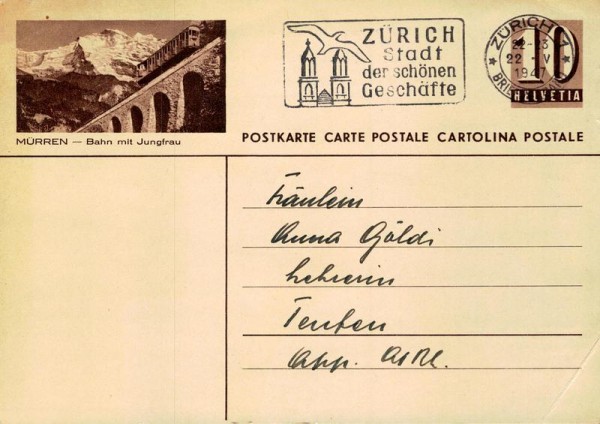 ZÜRICH
Stadt
der schönen
Geschäfte
ZÜRICH
22-23
22 - V
1947
10
HELVETIA
MÜRREN — Bahn mit Jungfrau
POSTKARTE CARTE POSTALE CARTOLINA POSTALE
Fräulein
Anna Göldi
Lehrerin
Teufen
App.